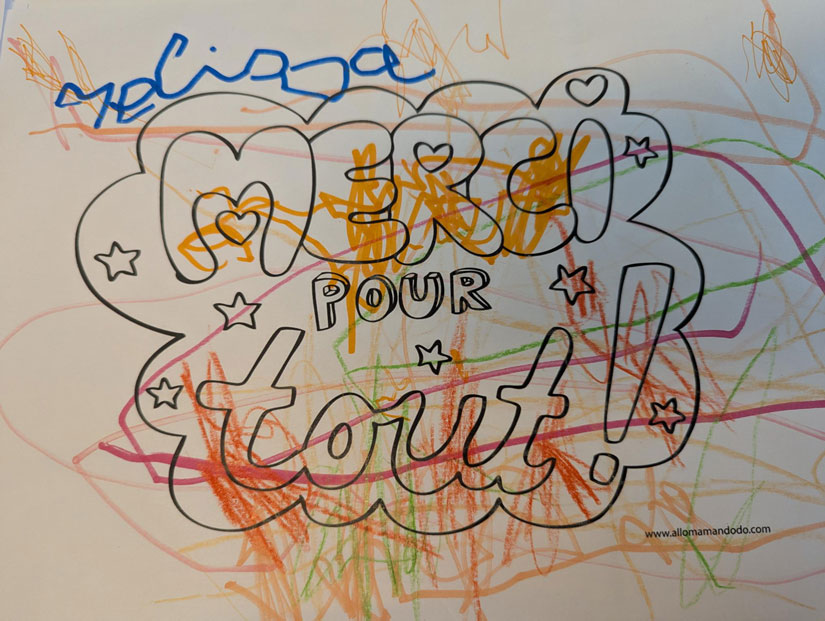 Melissa
MERCI
POUR
tout!
www.allomamandodo.com